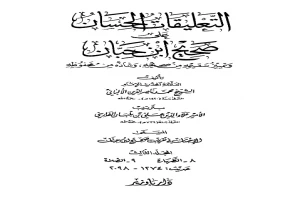 التعليقات الحسان
على
صحيح ابن حبان
وتمييز سقيمه من صحيحه، وشاذه من محفوظه
تأليف
الشيخ محمد ناصر الدين الألباني
بترتيب
الأمير علاء الدين علي بن بلبان الفارسي
المسمى
الإحسان في تقريب صحيح ابن حبان
المجلد الثالث
٨ - الطهارة ٩ - الصلاة
حديث: ١٢٧٤ - ٢٠٩٨
دار باوزير